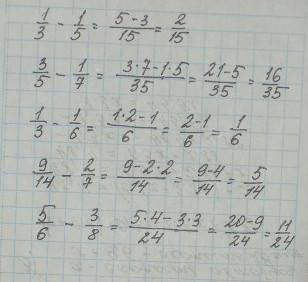 1/3 - 1/5 = (5-3)/15 = 2/15
3/5 - 1/7 = (3·7-1·5)/35 = (21-5)/35 = 16/35
1/3 - 1/6 = (1·2-1)/6 = (2-1)/6 = 1/6
9/14 - 2/7 = (9-2·2)/14 = (9-4)/14 = 5/14
5/6 - 3/8 = (5·4-3·3)/24 = (20-9)/24 = 11/24